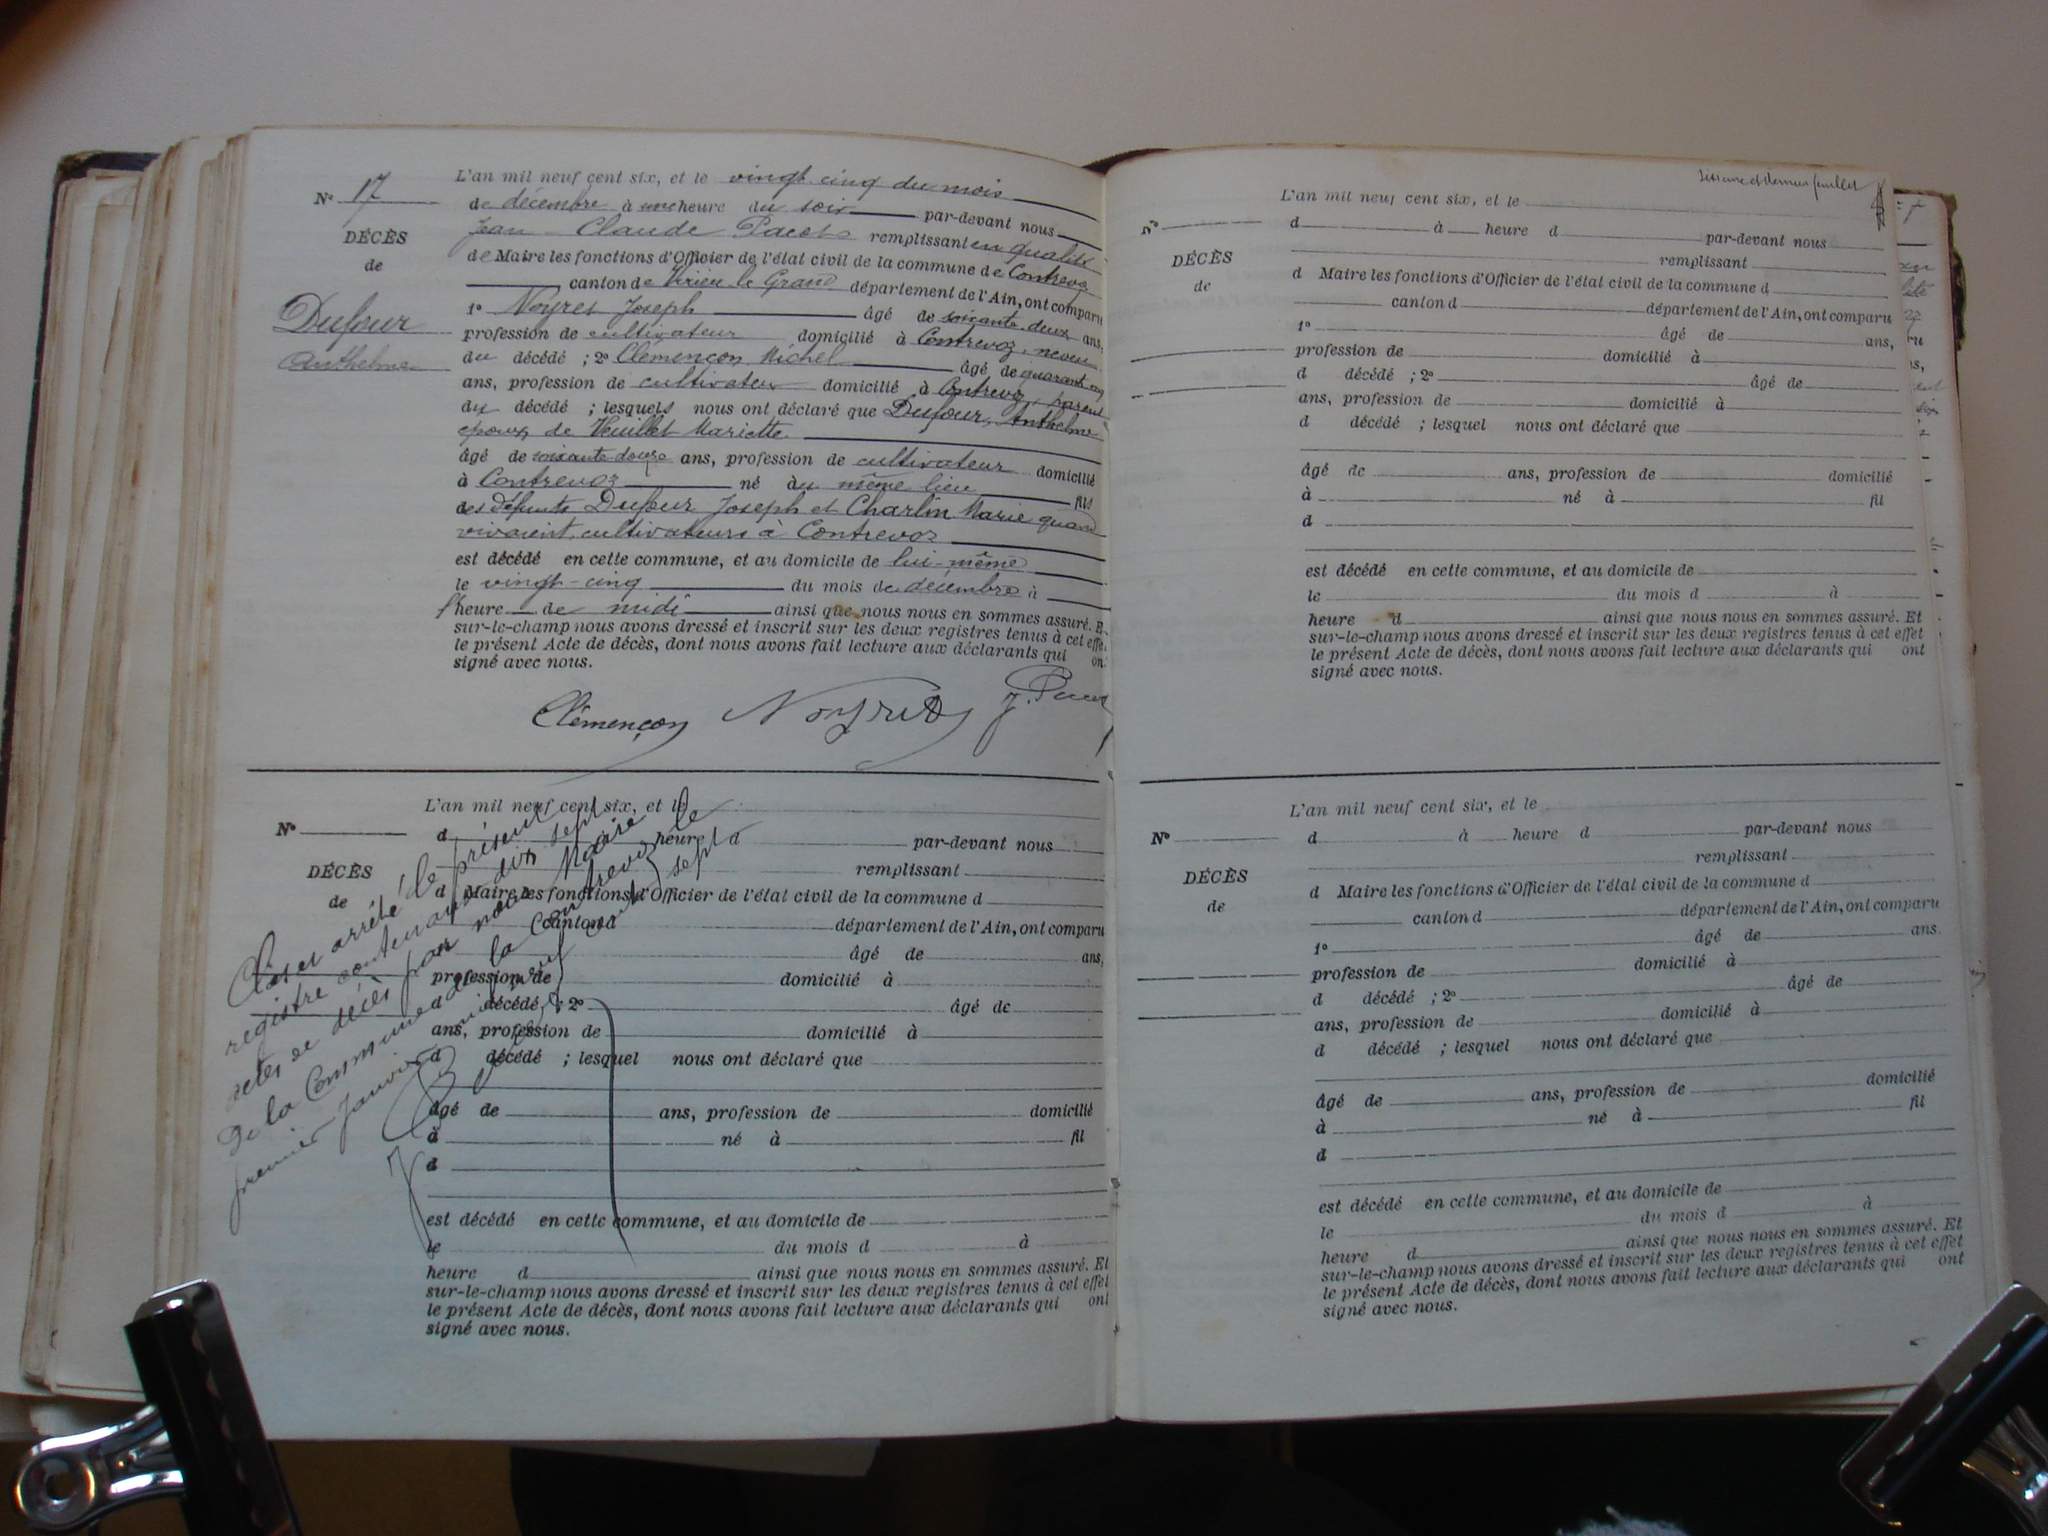 N° 17
DÉCÈS
de
Dufour
Anthelme
L'an mil neuf cent six, et le vingt cinq du mois
de décembre à une heure du soir par-devant nous
Jean Claude remplissant en qualité
de Maire les fonctions d'Officier de l'état civil de la commune de Contrevoz
canton de Virieu le Grand département de l'Ain, ont comparu
1° Noyret Joseph âgé de soixante deux ans,
profession de cultivateur domicilié à Contrevoz, neveu
du décédé ; 2° Clémençon Michel âgé de
ans, profession de cultivateur domicilié à Contrevoz, parent
du décédé ; lesquels nous ont déclaré que Dufour, Anthelme
époux de Veuillet Mariette
âgé de soixante douze ans, profession de cultivateur domicilié
à Contrevoz né au même lieu fils
des défunts Dufour Joseph et Charlin Marie quand
vivaient, cultivateurs à Contrevoz
est décédé en cette commune, et au domicile de lui-même
le vingt-cinq du mois de décembre à
heure de midi ainsi que nous nous en sommes assuré. E
sur-le-champ nous avons dressé et inscrit sur les deux registres tenus à cet effe
le présent Acte de décès, dont nous avons fait lecture aux déclarants qui on
signé avec nous.
Clémençon Noyret J.
N°
DÉCÈS
de
L'an mil neuf cent six, et le
d heure d par-devant nous
remplissant
d Maire les fonctions d'Officier de l'état civil de la commune d
canton d département de l'Ain, ont comparu
âgé de ans,
profession de domicilié à
d décédé ; 2° âgé de
ans, profession de domicilié à
d décédé ; lesquel nous ont déclaré que
âgé de ans, profession de domicilié
à né à fil
d
est décédé en cette commune, et au domicile de
le du mois d à
heure d ainsi que nous nous en sommes assuré. Et
sur-le-champ nous avons dressé et inscrit sur les deux registres tenus à cet effet
le présent Acte de décès, dont nous avons fait lecture aux déclarants qui ont
signé avec nous.
Clos et arrêté le présent
registre contenant dix sept
actes de décès par nous Maire
de la Commune de Contrevoz le
premier Janvier mil neuf cent sept
et dernier feuillet
N°
DÉCÈS
de
L'an mil neuf cent six, et le
d à heure d par-devant nous
remplissant
d Maire les fonctions d'Officier de l'état civil de la commune d
canton d département de l'Ain, ont comparu
1° âgé de ans,
profession de domicilié à
d décédé ; 2° âgé de
ans, profession de domicilié à
d décédé ; lesquel nous ont déclaré que
âgé de ans, profession de domicilié
à né à fil
d
est décédé en cette commune, et au domicile de
le du mois d à
heure d ainsi que nous nous en sommes assuré. Et
sur-le-champ nous avons dressé et inscrit sur les deux registres tenus à cet effet
le présent Acte de décès, dont nous avons fait lecture aux déclarants qui ont
signé avec nous.
N°
DÉCÈS
de
L'an mil neuf cent six, et le
d à heure d par-devant nous
remplissant
d Maire les fonctions d'Officier de l'état civil de la commune d
canton d département de l'Ain, ont comparu
1° âgé de ans.
profession de domicilié à
d décédé ; 2° âgé de
ans, profession de domicilié à
d décédé ; lesquel nous ont déclaré que
âgé de ans, profession de domicilié
à né à fil
d
est décédé en cette commune, et au domicile de
le du mois d à
heure d ainsi que nous nous en sommes assuré. Et
sur-le-champ nous avons dressé et inscrit sur les deux registres tenus à cet effet
le présent Acte de décès, dont nous avons fait lecture aux déclarants qui ont
signé avec nous.